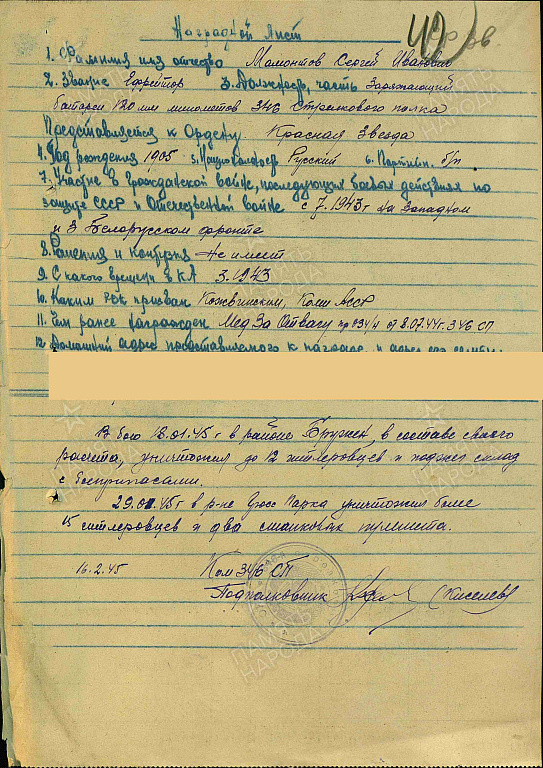 Наградной лист
1. Фамилия имя отчество Мамонтов Сергей Иванович
2. Звание Ефрейтор 3. Должность, часть Заряжающий
батареи 120 мм минометов 346 Стрелкового полка
Представляется к Ордену Красная Звезда
4. Год рождения 1905 5. Национальность Русский 6. Партийн. б/п
7. Участие в гражданской войне, последующих боевых действиях по
защите СССР и Отечественной войне с 7.1943 г на Западном
и 3 Белорусском фронте
8. Ранения и контузия Не имеет
9. С какого времени в КА 3.1943
10. Каким РВК призван Кожвинским, Коми АССР
11. Чем ранее награжден Мед За Отвагу от 8.07.44г. 346 СП
12. Домашний адрес представляемого к награде и адрес его семьи:
В бою 18.01.45 г в районе в составе своего
расчета, уничтожил до 12 гитлеровцев и поджег склад
с боеприпасами.
29.01.45г в р-не Гросс Парка уничтожил более
15 гитлеровцев и два станковых пулемета.
16.2.45 Ком 346 СП
Подполковник (Киселев)
ПАМЯТЬ
НАРОДА